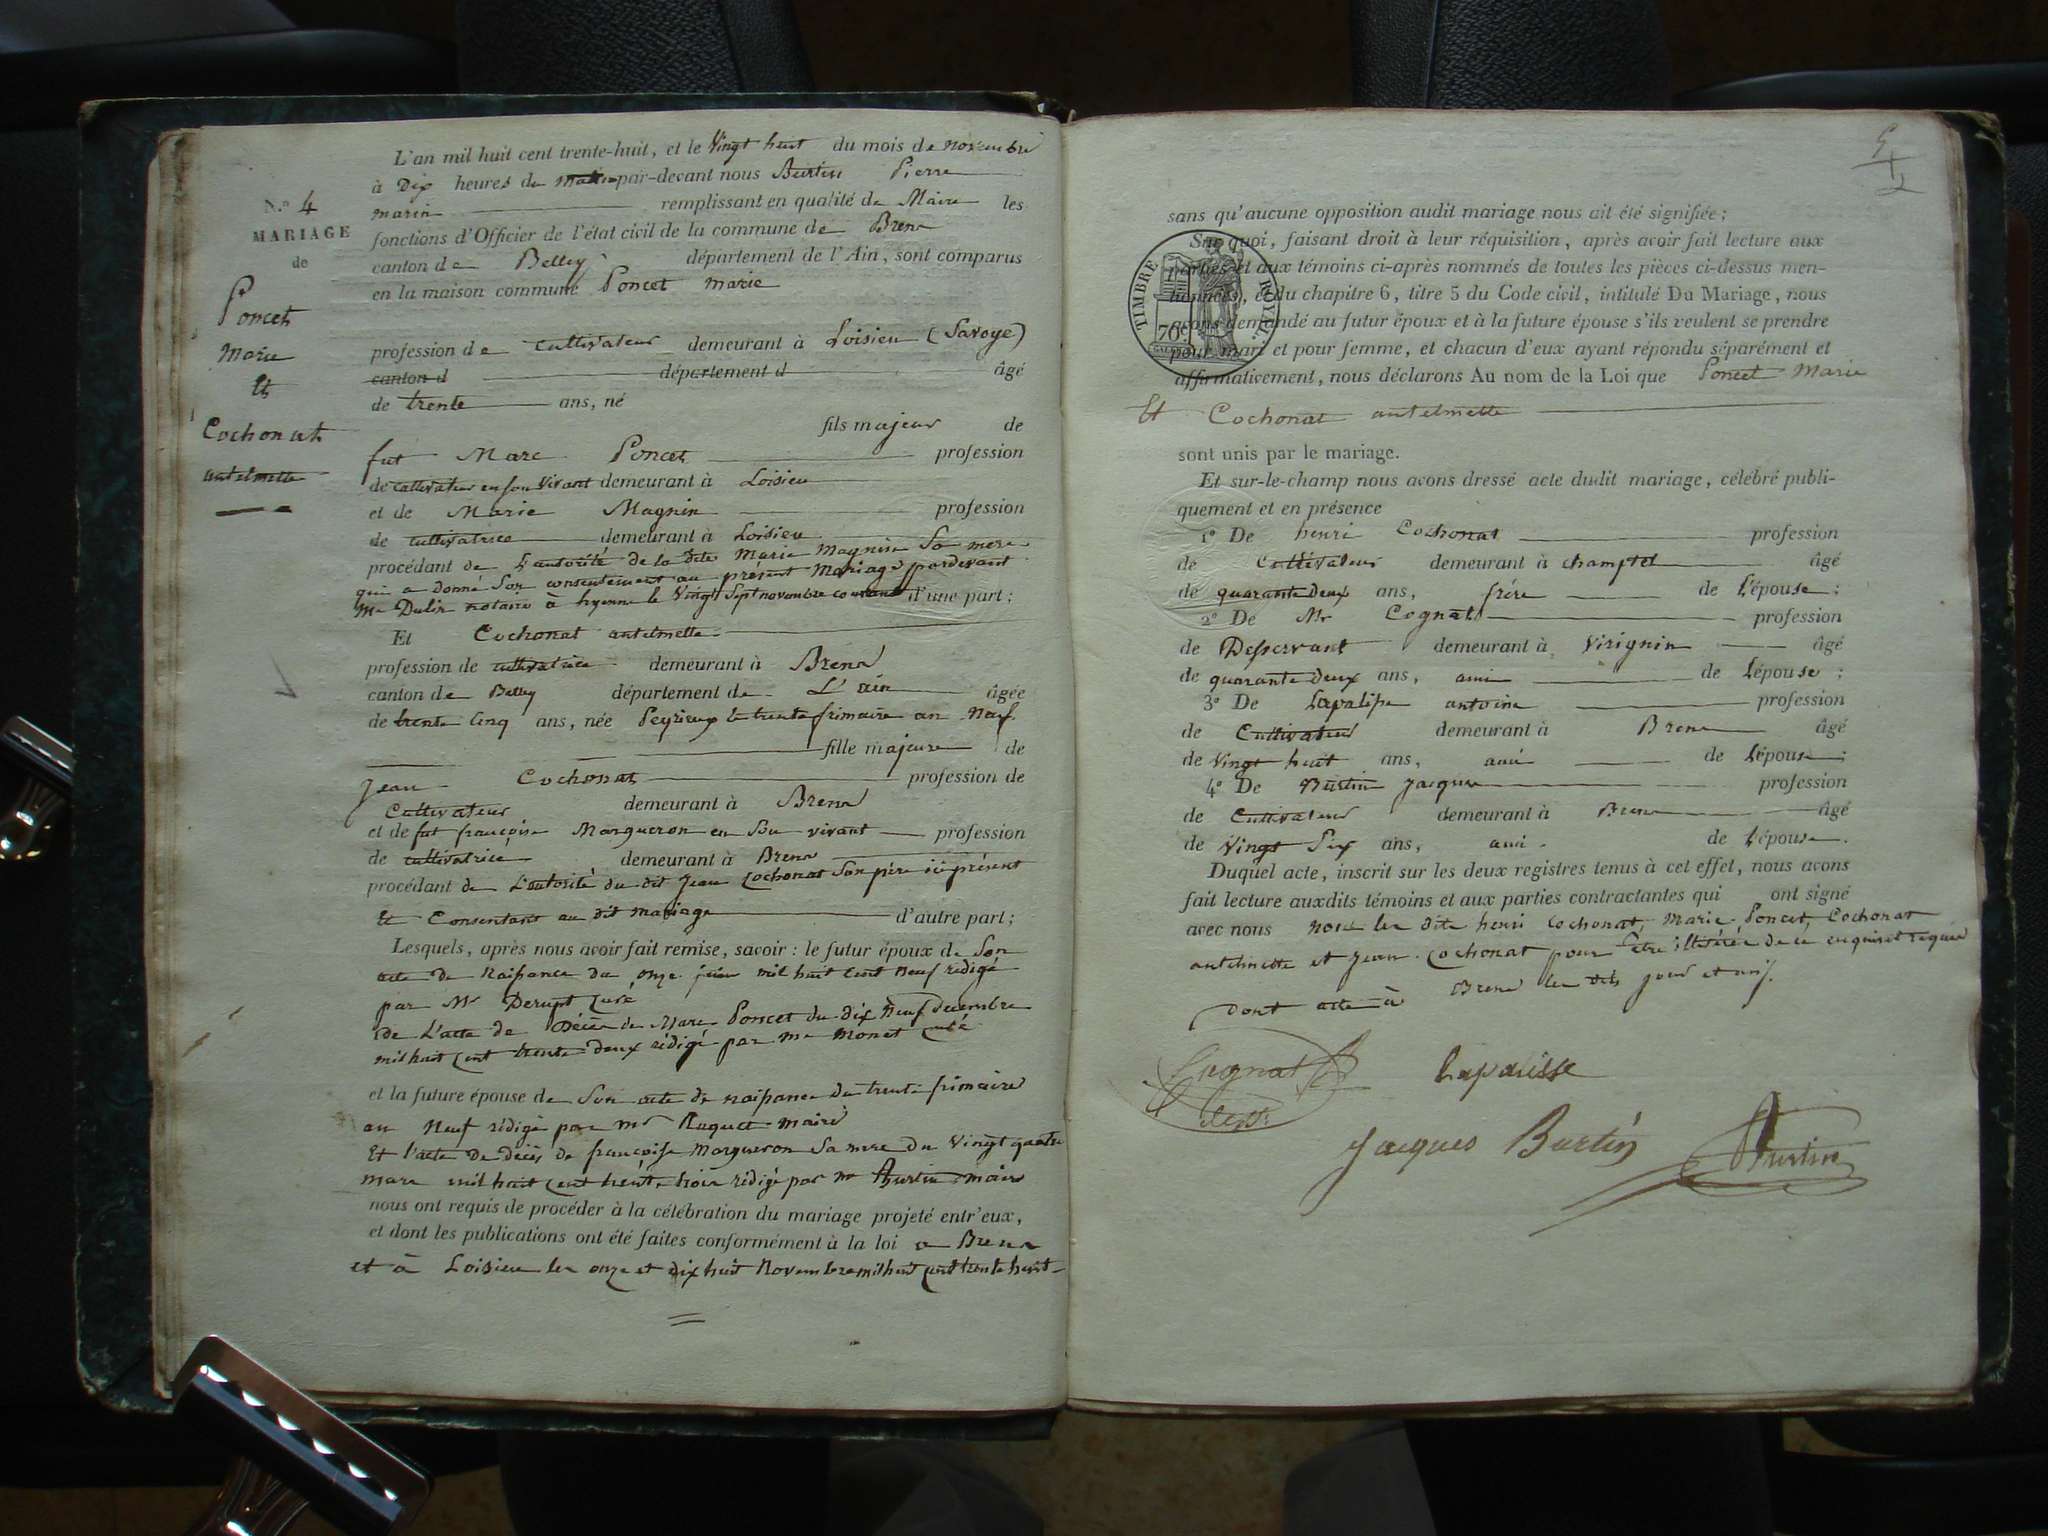 N.º 4
MARIAGE
de
Poncet
Marie
Et
Cochonat
antelmette
L'an mil huit cent trente-huit, et le Vingt huit du mois de novembre
à Dix heures du matin par-devant nous Burtin Pierre
marin remplissant en qualité de Maire les
fonctions d'Officier de l'état civil de la commune de Brens
canton de Belley département de l'Ain, sont comparus
en la maison commune Poncet Marie
profession de Cultivateur demeurant à Loisieu (Savoye)
canton d département d âgé
de trente ans, né
fils majeur de
fut Marc Poncet profession
de cultivateur en son Vivant demeurant à Loisieu
et de Marie Magnin profession
de cultivatrice demeurant à Loisieu
procédant de L'autorité de la dite Marie Magnin Sa mere
qui a donné Son consentement au présent Mariage pardevant
Me Dulin notaire à hyenne le Vingt Sept novembre courant d'une part;
Et Cochonat antelmette
profession de cultivatrice demeurant à Brens
canton de Belley département de L'ain âgée
de trente Cinq ans, née Peyrieux le trente frimaire an Neuf
fille majeure de
Jean Cochonat profession de
Cultivateur demeurant à Brens
et de fut françoise Margueron en Son vivant profession
de cultivatrice demeurant à Brens
procédant de L'autorité du dit Jean Cochonat Son père ici présent
Et Consentant au dit mariage d'autre part;
Lesquels, après nous avoir fait remise, savoir: le futur époux de Son
acte de Naissance du onze juin mil huit Cent Neuf rédigé
par Mr Derupt Curé
De L'acte de Décès de Marc Poncet du dix Neuf decembre
mil huit Cent trente deux rédigé par Mr Monet Curé
et la future épouse de Son acte de naissance du trente frimaire
an Neuf rédigé par Mr Ruguet maire
Et l'acte de décès de françoise Margueron Sa mere du Vingt quatre
mars mil huit Cent trente trois rédigé par Mr Burtin maire
nous ont requis de procéder à la célébration du mariage projeté entr'eux,
et dont les publications ont été faites conformément à la loi a Brens
et à Loisieu les onze et dix huit Novembre mil huit Cent trente huit
5
2
TIMBRE ROYAL
70c
sans qu'aucune opposition audit mariage nous ait été signifiée;
Sur quoi, faisant droit à leur réquisition, après avoir fait lecture aux
parties et aux témoins ci-après nommés de toutes les pièces ci-dessus men-
tionnées, et du chapitre 6, titre 5 du Code civil, intitulé Du Mariage, nous
avons demandé au futur époux et à la future épouse s'ils veulent se prendre
pour mari et pour femme, et chacun d'eux ayant répondu séparément et
affirmativement, nous déclarons Au nom de la Loi que Poncet Marie
Et Cochonat antelmette
sont unis par le mariage.
Et sur-le-champ nous avons dressé acte dudit mariage, célébré publi-
quement et en présence
1º De henri Cochonat profession
de Cultivateur demeurant à champtel âgé
de quarante Deux ans, frére de L'épouse;
2º De Mr Cognat profession
de Desservant demeurant à Virignin âgé
de quarante Deux ans, ami de L'épouse;
3º De Lapalisse antoine profession
de Cultivateur demeurant à Brens âgé
de Vingt huit ans, ami de L'épouse;
4º De Burtin Jacques profession
de Cultivateur demeurant à Brens âgé
de Vingt Six ans, ami de L'épouse.
Duquel acte, inscrit sur les deux registres tenus à cet effet, nous avons
fait lecture auxdits témoins et aux parties contractantes qui ont signé
avec nous non les dits henri Cochonat, Marie Poncet, Cochonat
antelmette et Jean Cochonat pour être illitérés de ce enquis et requis
Dont acte à Brens les dits jour et an
Cognat
dess.
Lapalisse
Jacques Burtin
Burtin